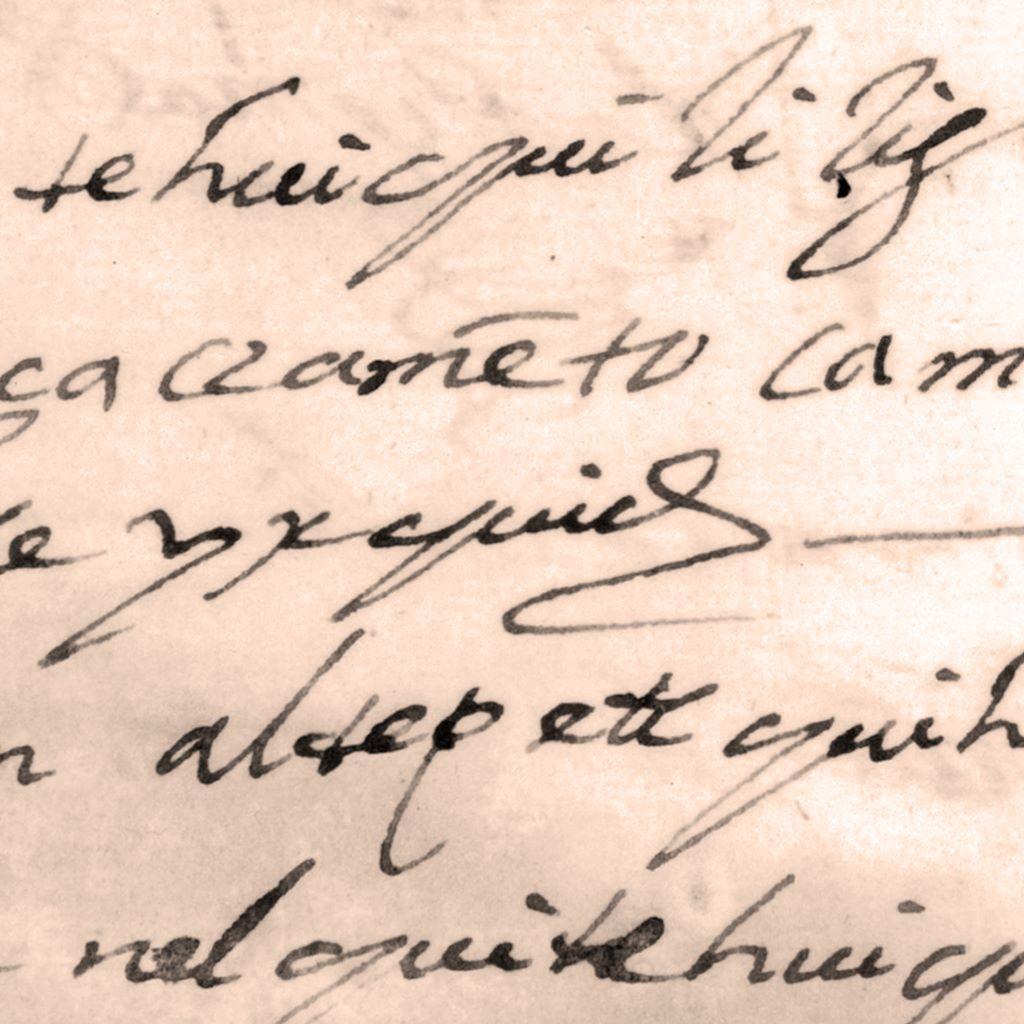 tehuiquililiz
ça czamēto cam
yxquich
altepetl quih
nel quitehuiqu